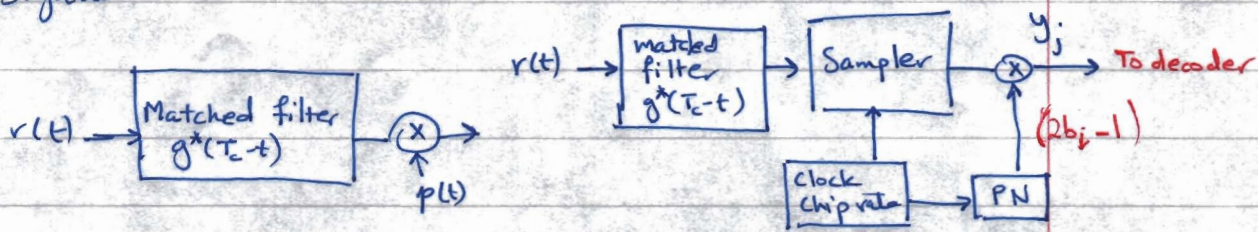 r(t)
Matched filter
g*(T_c-t)
p(t)
r(t)
matched
filter
g*(T_c-t)
Sampler
y_j
To decoder
(2b_j-1)
Clock
Chip rate
PN